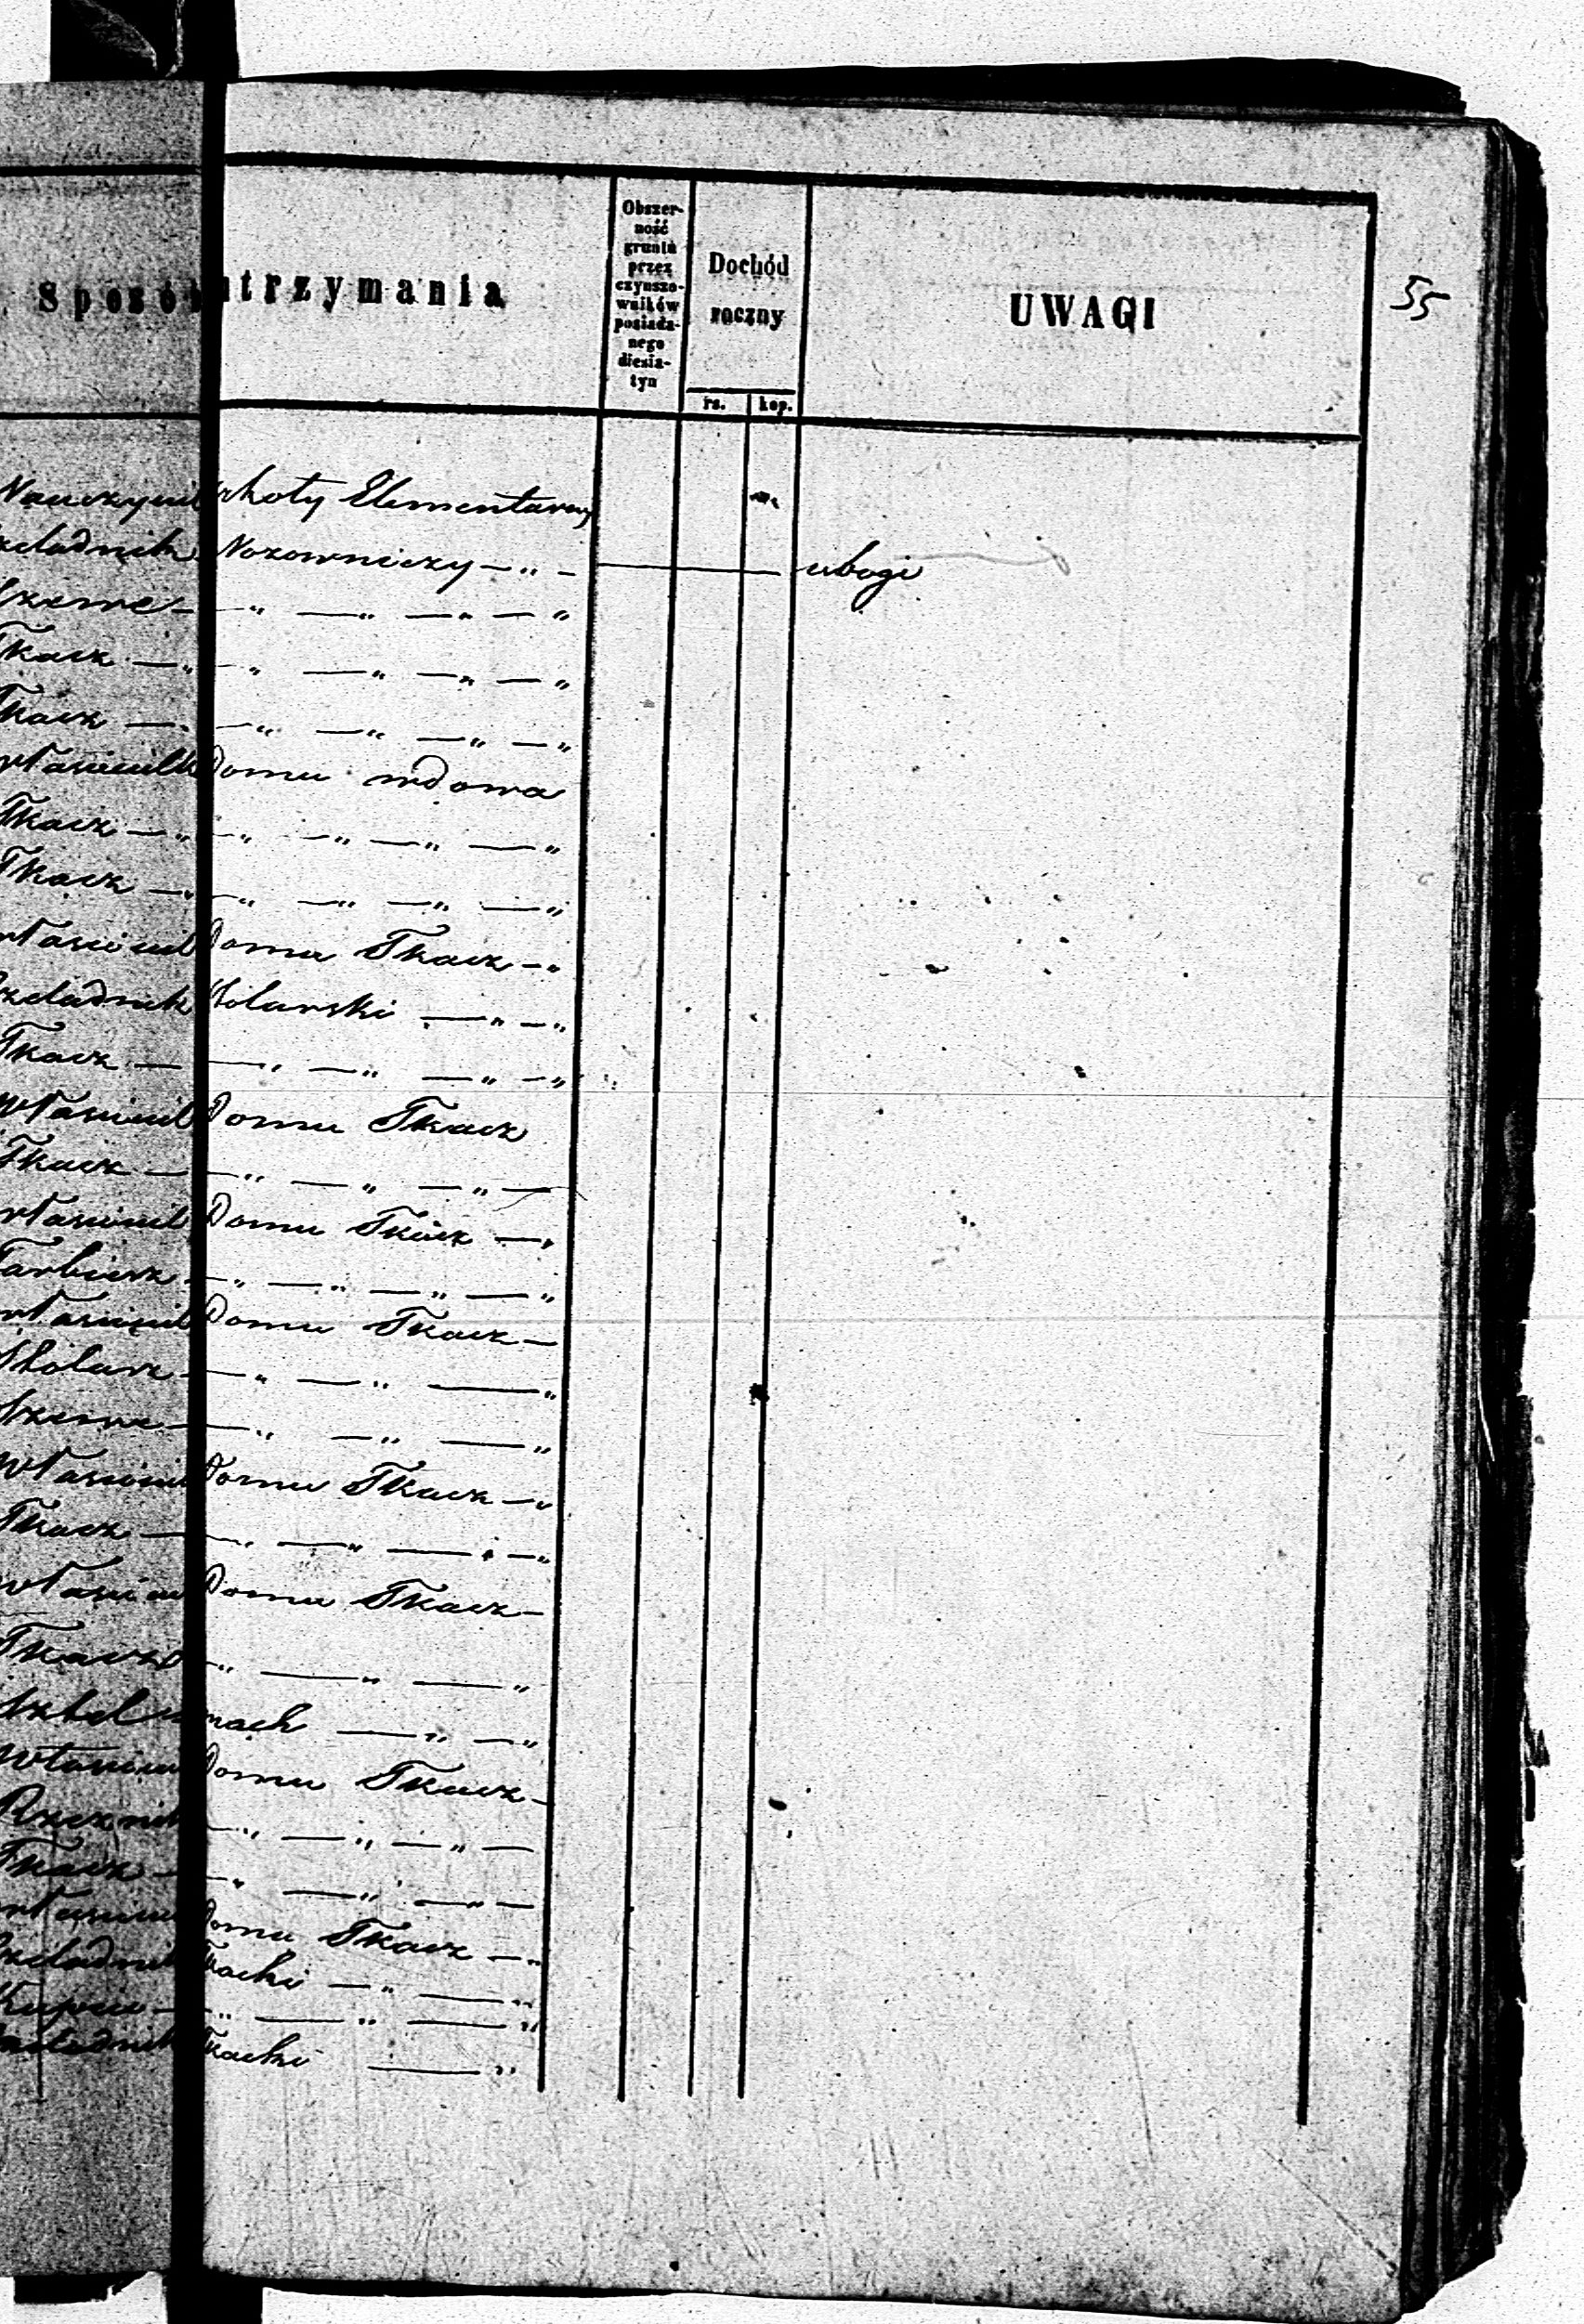 Sposób utrzymania
Obszer-
ność
gruntu
przez
czynszo-
wników
posiada-
nego
diesia-
tyn
Dochód
roczny
rs. kop.
UWAGI
55
Nauczyciel szkoły Elementarnej
czeladnik Nozowniczy — " — ubogi
Szewc — " — " — " — "
Tkacz — " — " — " — " — "
Tkacz — " — " — " — " — "
właścicielk Domu wdowa
Tkacz — " — " — " — " — "
Tkacz — " — " — " — " — "
właściciel Domu Tkacz — "
Czeladnik Stolarski — " — "
Tkacz — " — " — " — "
Właściciel Domu Tkacz
Tkacz — " — " — " —
właściciel Domu Tkacz — "
Farbierz — " — " — " — "
właściciel Domu Tkacz —
Stolarz — " — " — "
Szewc — " — " — "
Właściciel Domu Tkacz — "
Tkacz — " — " — " — "
właściciel Domu Tkacz —
Tkacz — " — " — "
— " — "
Właściciel Domu Tkacz —
Rzeznik — " — " — " —
Tkacz — " — " — " —
właściciel Domu Tkacz — "
Czeladnik Tkacki — " — "
Kupiec — " — " — "
Czeladnik Tkacki — "